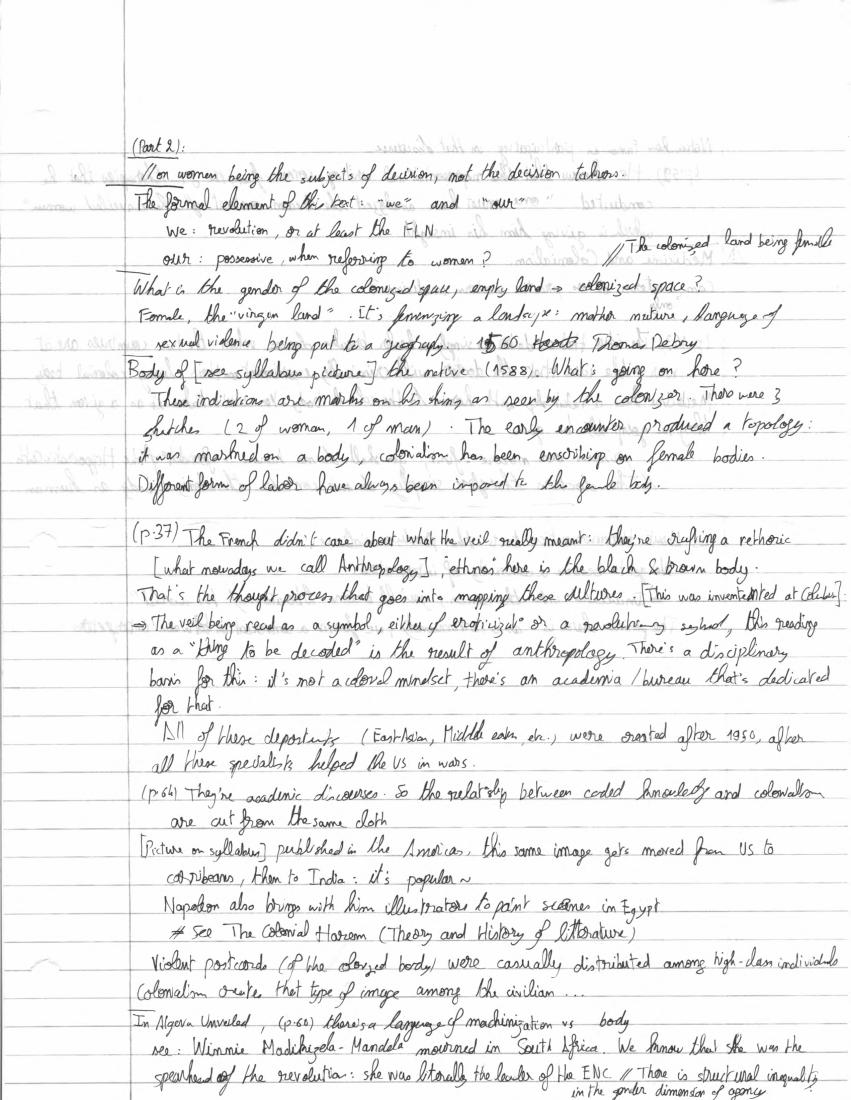 (Part 2):
// on women being the subjects of decision, not the decision takers.
The formal element of this text: "we" and "our"
we: revolution, or at least the FLN
our: possessive, when referring to women?
// The colonized land being female
What is the gender of the colonized space, empty land → colonized space?
Female, the "virgin land". It's feminizing a landscape: mother nature, language of
sexual violence being put to a geography. 1560 Thomas Debry
Body of [see syllabus picture] the native (1588). What's going on here?
These indications are marks on his skins as seen by the colonizer. There were 3
sketches (2 of woman, 1 of man). The early encounter produced a topology:
it was marked on a body, colonialism has been enscribing on female bodies.
Different form of labor have always been imposed to the female body.
(p.37) The French didn't care about what the veil really meant: they're crafting a rethoric
[what nowadays we call Anthropology], "ethnos" here is the black & brown body.
That's the thought process that goes into mapping these cultures. [This was invented at Columbia].
⇒ The veil being read as a symbol, either of eroticizat° or a revolutionary symbol, this reading
as a "thing to be decoded" is the result of anthropology. There's a disciplinary
basis for this: it's not a mindset, there's an academia / bureau that's dedicated
for that.
All of these departments (East Asian, Middle eastern, etc.) were created after 1950, after
all these specialists helped the US in wars.
(p.64) They're academic discourses. So the relat°ship between coded knowledge and colonialism
are cut from the same cloth
[Picture on syllabus] published in the Americas, this same image gets moved from US to
carribeans, then to India: it's popular ~
Napoleon also brings with him illustrators to paint scenes in Egypt
# see The Colonial Harem (Theory and History of litterature)
Violent postcards (of the colonized body) were casually distributed among high-class individuals
Colonialism creates that type of image among the civilian ...
In Algeria Unveiled, (p.60) there's a language of machinization vs body
see: Winnie Madikizela-Mandela mourned in South Africa. We know that she was the
spearhead of the revolution: she was literally the leader of the ENC // There is structural inequality
in the gender dimension of agency